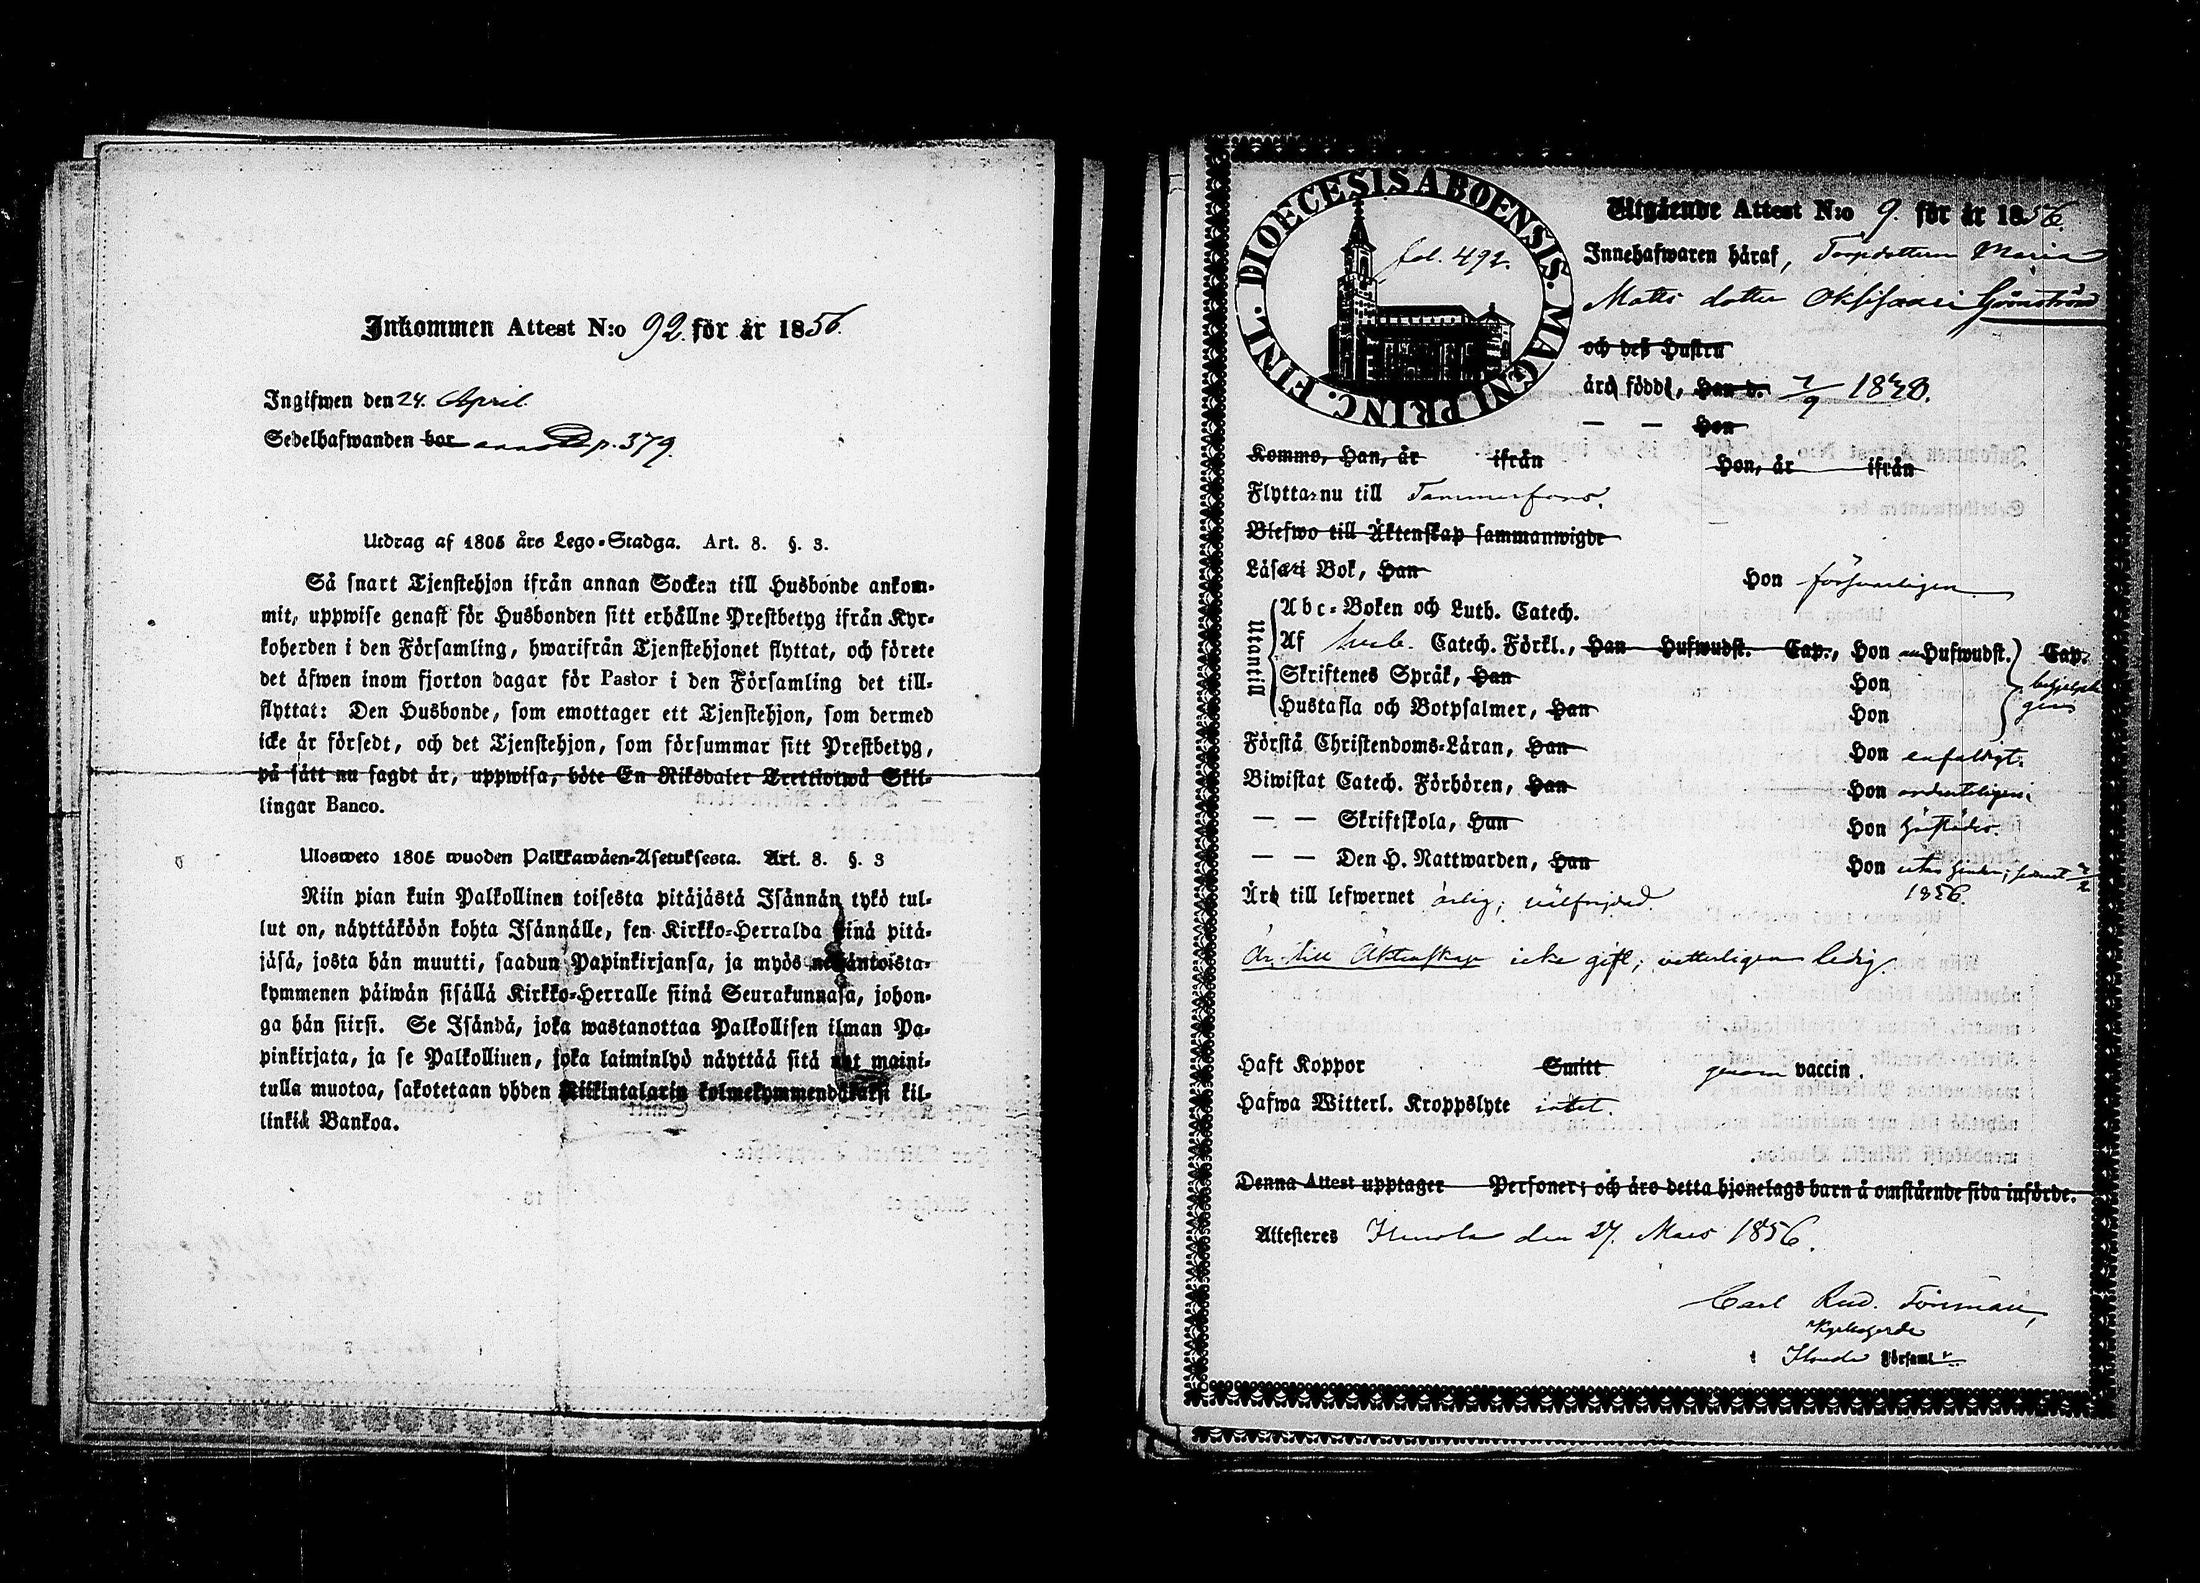 Inkommen Attest N:o 92. för år 1856.
Ingifwen den 24. April.
Sedelhafwanden bor p. 379.
Utdrag af 1805 års Lego-Stadga. Art. 8. §. 3.
Så snart Tjenstehjon ifrån annan Socken till Husbonde ankom-
mit, uppwise genast för Husbonden sitt erhållne Prestbetyg ifrån Kyr-
koherden i den Församling, hwarifrån Tjenstehjonet flyttat, och förete
det äfwen inom fjorton dagar för Pastor i den Församling det till-
flyttat: Den Husbonde, som emottager ett Tjenstehjon, som dermed
icke är försedt, och det Tjenstehjon, som försummar sitt Prestbetyg,
på sätt nu sagdt är, uppwisa, böte En Riksdaler Trettiotwå Skil-
lingar Banco.
Ulosweto 1805 wuoden Palkkawäen-Asetuksesta. Art. 8. §. 3
Niin pian kuin Palkollinen toisesta pitäjästä Isännän tykö tul-
lut on, näyttäköön kohta Isännälle, sen Kirkko-Herralda siinä pitä-
jäsä, josta hän muutti, saadun Papinkirjansa, ja myös neljäntoista-
kymmenen päiwän sisällä Kirkko-Herralle siinä Seurakunnasa, johon-
ga hän siirsi. Se Isändä, joka wastanottaa Palkollisen ilman Pa-
pinkirjata, ja se Palkollinen, joka laiminlyö näyttää sitä nyt maini-
tulla muotoa, sakotetaan yhden Riikintalarin kolmekymmendäkaksi kil-
linkiä Bankoa.
DIOECESIS ABOENSIS. MAGNI PRINC. FINL.
fol. 492.
Utgående Attest N:o 9. för år 1856.
Innehafwaren häraf, Torpdottern Maria
Matts dotter
och des Hustru
äro födde, Han d. 7/9 18
— — Hon
Kommo, Han, år ifrån Hon, år ifrån
Flytta nu till Tammerfors.
Blefwo till Äktenskap sammanwigde
Läsa i Bok, Han Hon försvarligen
Utantill
Abc-Boken och Luth. Catech.
Af Catech. Förkl., Han Hufwudst. Cap., Hon Hufwudst. Cap.
Skriftenes Språk, Han Hon
Hustafla och Botpsalmer, Han Hon
Förstå Christendoms-Läran, Han Hon enfaldigt.
Biwistat Catech. Förhören, Han Hon ordenteligen.
— — Skriftskola, Han Hon
— — Den H. Nattwarden, Han Hon utan hinder, senast
1856.
Äro till lefwernet ärlig, välfrejdad.
Är till Äktenskap icke gift, vetterligen ledig.
Haft Koppor Smitt genom vaccin.
Hafwa Witterl. Kroppslyte intet.
Denna Attest upptager Personer; och äro detta hjonelags barn å omstående sida införde.
Attesteres den 27. Mars 1856.
Carl Rud. Törnman,
Kyrkoherde
i Församl